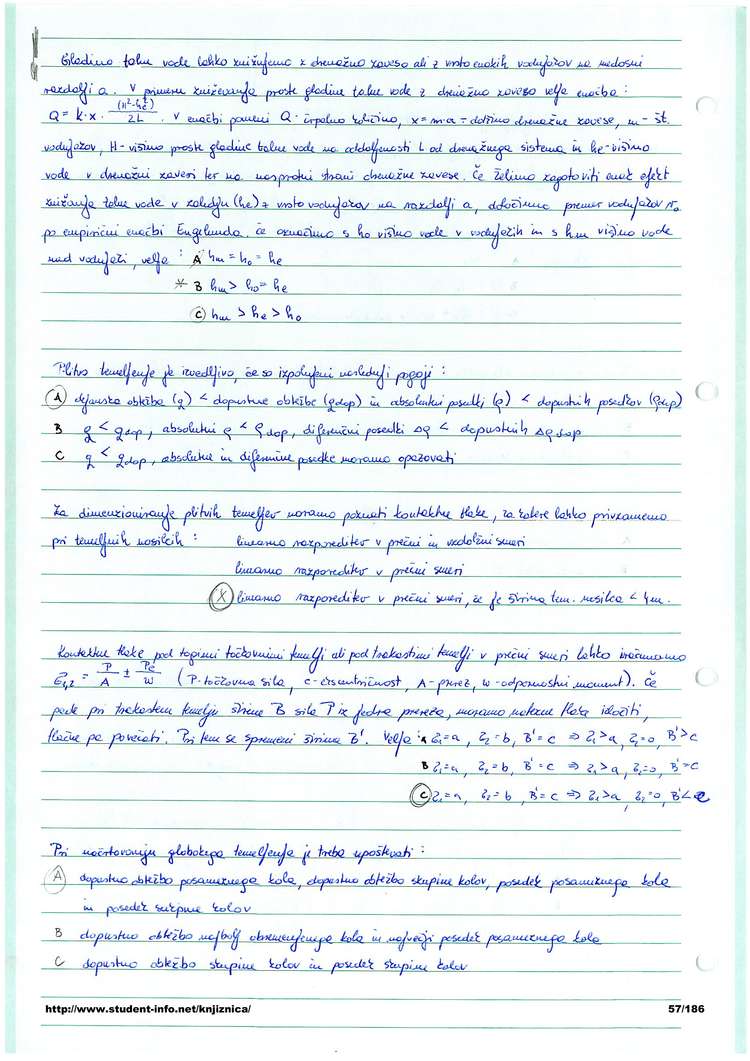 Gladino talne vode lahko znižujemo z drenažno zaveso ali z vrsto enakih vodnjakov na medosni
razdalji a. V primeru zniževanja proste gladine talne vode z drenažno zaveso velja enačba:
Q = k·x · (H²-he²)/2L . V enačbi pomeni Q - črpalno količino, x = m·a = dolžino drenažne zavese, m - št.
vodnjakov, H - višino proste gladine talne vode na oddaljenosti L od drenažnega sistema in he - višino
vode v drenažni zavesi ter na nasprotni strani drenažne zavese. Če želimo zagotoviti enak efekt
znižanja talne vode v zaledju (he) z vrsto vodnjakov na razdalji a, določimo premer vodnjakov ro
po empirični enačbi Engelunda. Če označimo s ho višino vode v vodnjakih in s hm višino vode
med vodnjaki, velja : A hm = ho = he
* B hm > ho = he
C hm > he > ho
Plitvo temeljenje je izvedljivo, če so izpolnjeni naslednji pogoji :
A dejanska obtežba (q) < dopustne obtežbe (qdop) in absolutni posedki (ρ) < dopustnih posedkov (ρdop)
B q < qdop, absolutni ρ < ρdop, diferenčni posedki Δρ < dopustnih Δρdop
C q < qdop, absolutne in diferenčne posedke moramo opazovati
Za dimenzioniranje plitvih temeljev moramo poznati kontaktne tlake, za katere lahko privzamemo
pri temeljnih nosilcih : linearno razporeditev v prečni in vzdolžni smeri
linearno razporeditev v prečni smeri
X linearno razporeditev v prečni smeri, če je širina tem. nosilca < 4m.
Kontaktne tlake pod togimi točkovnimi temelji ali pod trakastimi temelji v prečni smeri lahko izračunamo
σ1,2 = P/A ± Pe/W (P - točkovna sila, e - ekscentričnost, A - prerez, w - odpornostni moment). Če
pade pri trakastem temelju širine B sila P iz jedra prereza, moramo natezne tlake izločiti,
tlačne pa povečati. Pri tem se spremeni širina B'. Velja : A σ1=a, σ2=b, B'=c ⇒ σ1>a, σ2=0, B'>c
B σ1=a, σ2=b, B'=c ⇒ σ1>a, σ2=0, B'=c
C σ1=a, σ2=b, B'=c ⇒ σ1>a, σ2=0, B'<c
Pri načrtovanju globokega temeljenja je treba upoštevati :
A dopustno obtežbo posameznega kola, dopustno obtežbo skupine kolov, posedek posameznega kola
in posedek skupine kolov
B dopustno obtežbo najbolj obremenjenega kola in največji posedek posameznega kola
C dopustno obtežbo skupine kolov in posedek skupine kolov
http://www.student-info.net/knjiznica/ 57/186